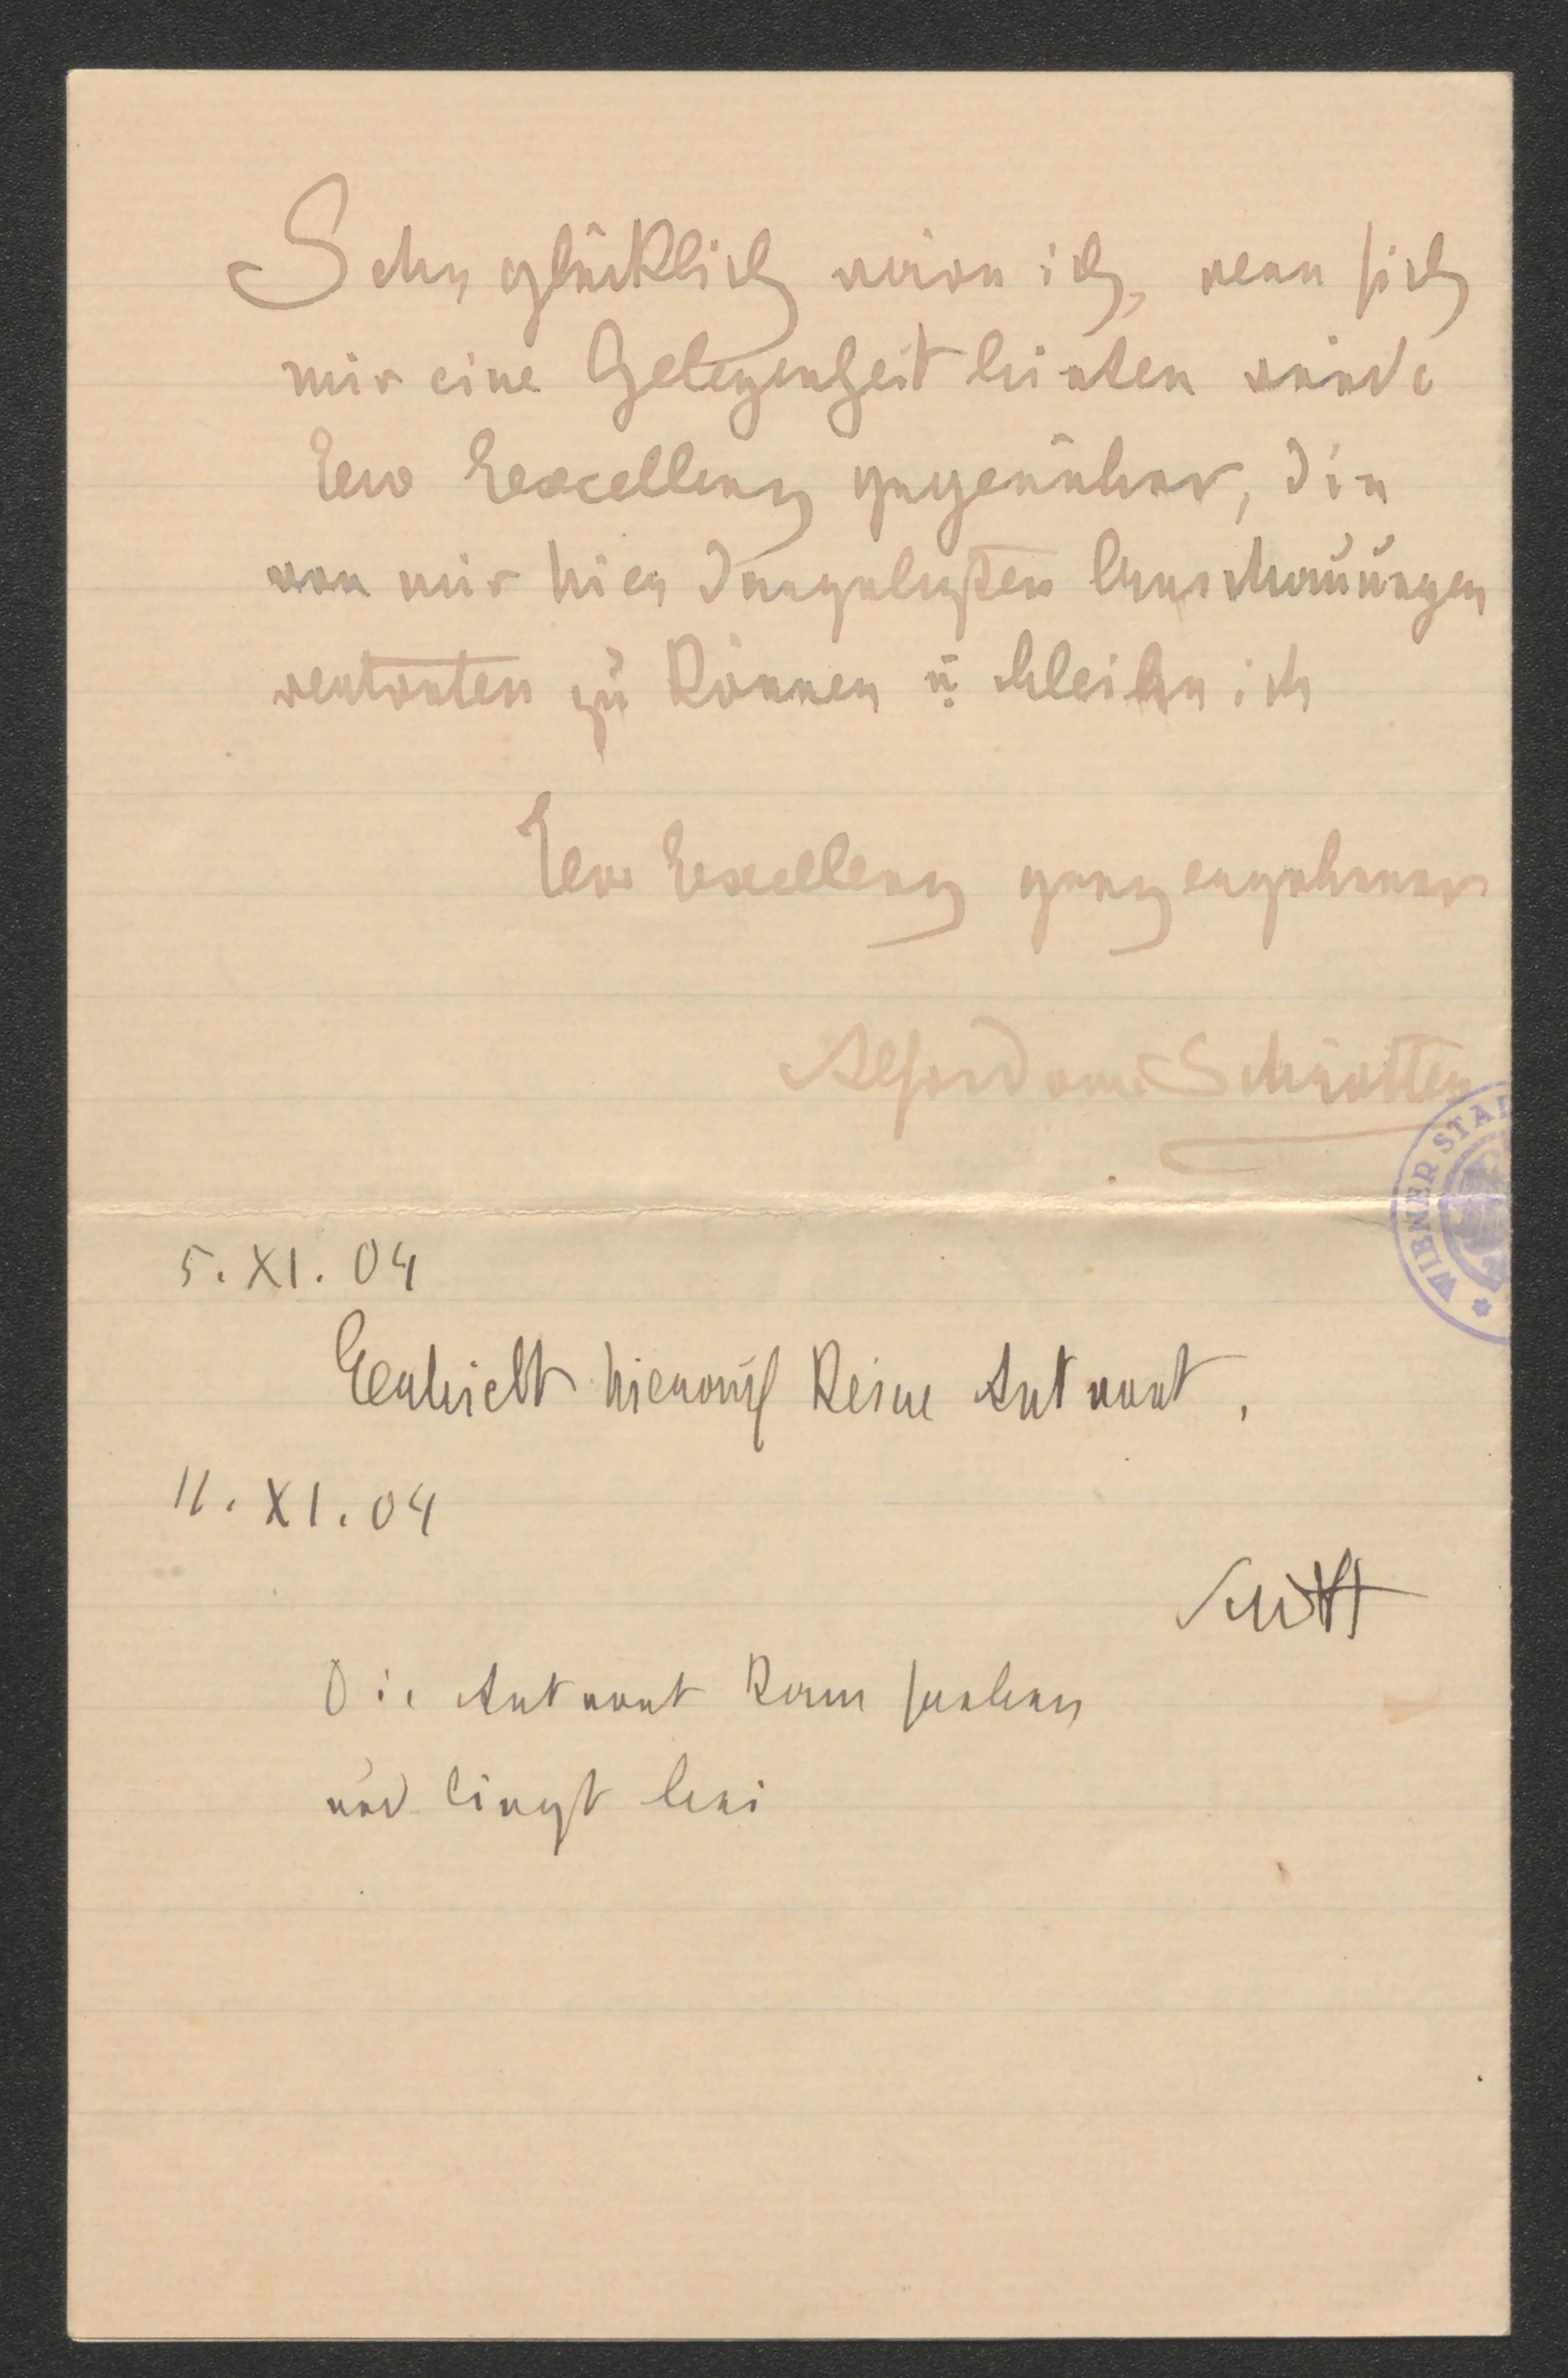 Sehr glücklich wäre ich, wenn sich
mir eine Gelegenheit bieten würde
Eew Excellenz gegenüber, die
von mir hier dargelegten Anschauungen
vertreten zu können u. bleibe ich
Eew Excellenz ganz ergebener
Alfred von Schrötter
WIENER STA
5. XI. 04
Erhielt hierauf keine Antwort.
11. XI. 04
Schött
Die Antwort kam soeben
und liegt bei